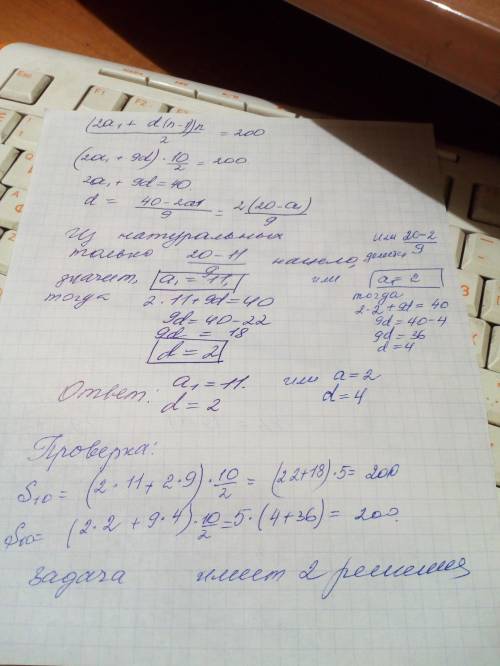 (2a₁ + d(n-1)n / 2 = 200
(2a₁ + 9d) · 10/2 = 200
2a₁ + 9d = 40
d = 40-2a1 / 9 = 2(20-a₁) / 9
Из натуральных
только 20-11 / 9 нацело, или 20-2 / 9
значит, a₁ = 11, или a₁ = 2
тогда
2·11+9d=40
9d = 40-22
9d = 18
d = 2
тогда
2·2+9d = 40
9d = 40-4
9d = 36
d = 4
Ответ: a₁ = 11. или a = 2
d = 2 d = 4
Проверка:
S₁₀ = (2·11 + 2·9) · 10/2 = (22+18)·5 = 200
S₁₀ = (2·2 + 9·4) · 10/2 = 5·(4+36) = 200.
задача имеет 2 решения